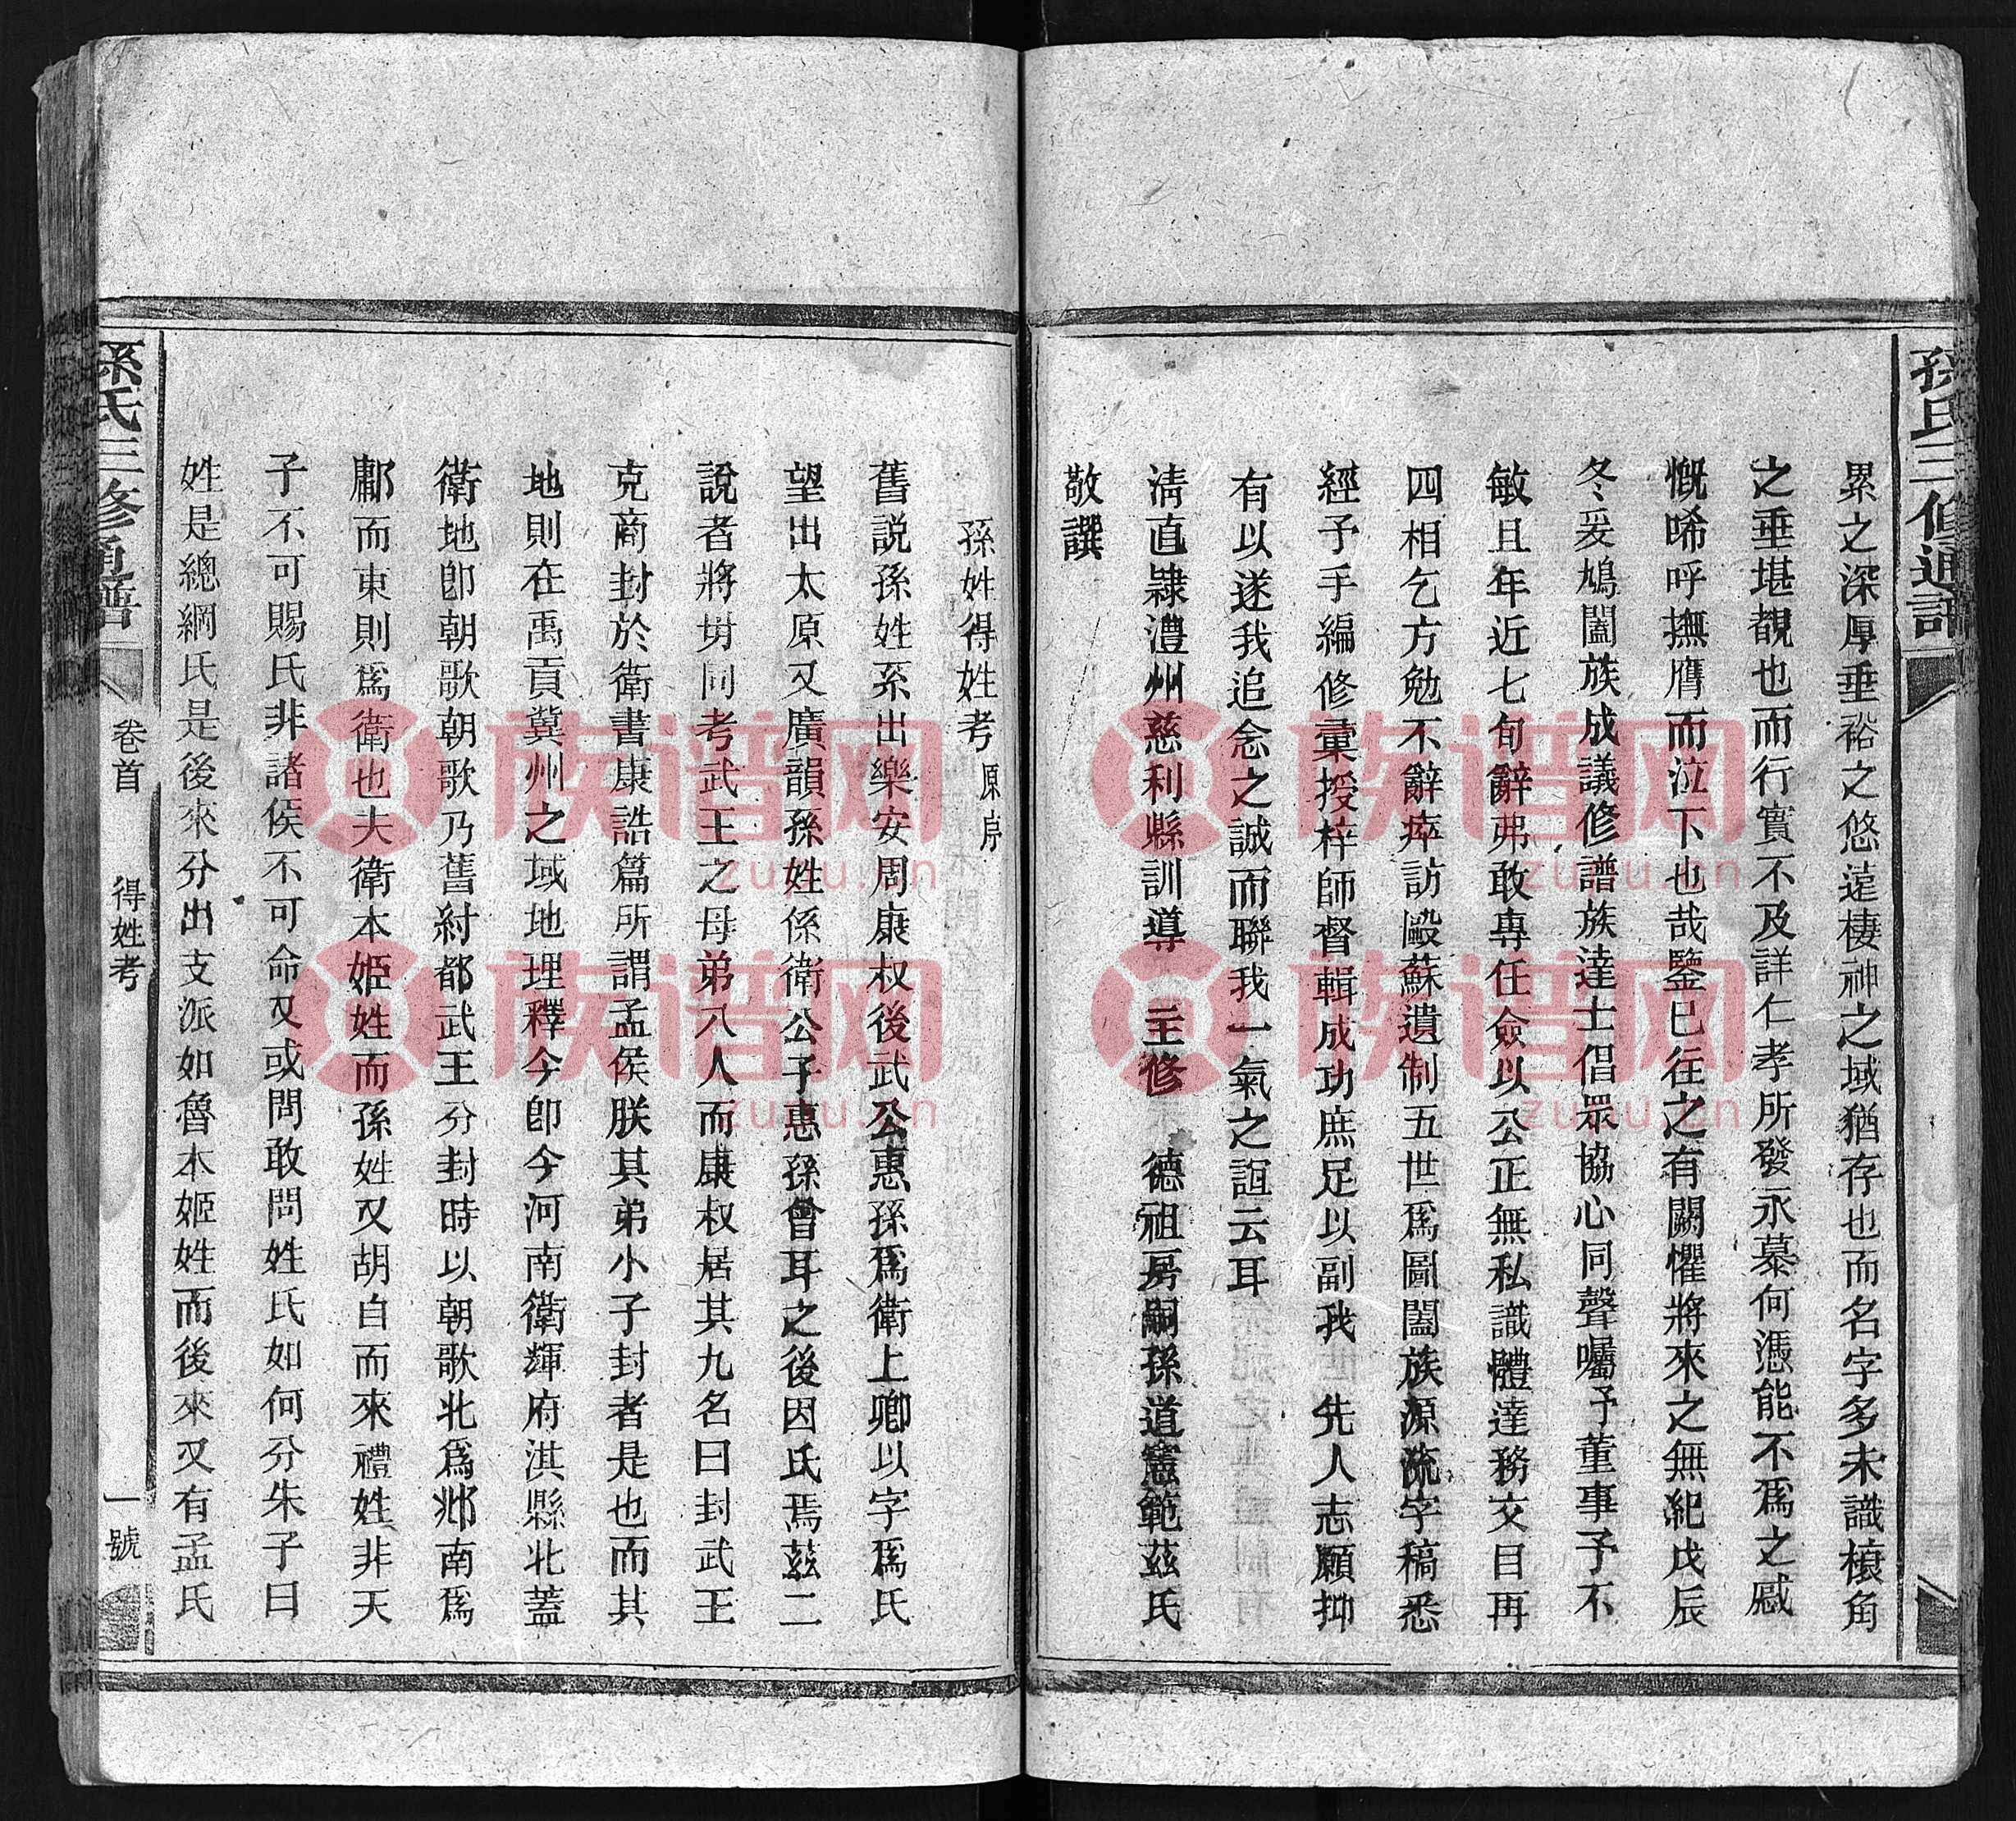 孫氏三修通譜
累之深厚垂裕之悠遠棲神之域猶存也而名字多未識榱角
之垂堪覩也而行實不及詳仁孝所發永慕何憑能不爲之慼
慨唏呼撫膺而泣下也哉鑒已往之有闕懼將來之無紀戊辰
冬爰鳩闔族成議修譜族達士倡眾協心同聲囑予董事予不
敏且年近七旬辭弗敢專任僉以公正無私識體達務交目再
四相乞方勉不辭瘁訪毆蘇遺制五世爲圖闔族源流字稿悉
經予手編修彙授梓師督輯成功庶足以副我 先人志願抑
有以遂我追念之誠而聯我一氣之誼云耳
淸直隷澧州慈利縣訓導 主修 德祖房嗣孫道憲範茲氏
敬譔
孫姓得姓考 原序
舊說孫姓系出樂安周康叔後武公惠孫爲衛上卿以字爲氏
望出太原又廣韻孫姓係衛公子惠孫曾耳之後因氏焉茲二
說者將毋同考武王之母弟八人而康叔居其九名曰封武王
克商封於衛書康誥篇所謂孟侯朕其弟小子封者是也而其
地則在禹貢冀州之域地理釋今卽今河南衛輝府淇縣北蓋
衛地卽朝歌朝歌乃舊紂都武王分封時以朝歌北爲邶南爲
鄘而東則爲衛也夫衛本姬姓而孫姓又胡自而來禮姓非天
子不可賜氏非諸侯不可命又或問敢問姓氏如何分朱子曰
姓是總綱氏是後來分出支派如魯本姬姓而後來又有孟氏
孫氏三修通譜
卷首 得姓考
一號
族谱网
zupu.cn
族谱网
zupu.cn
族谱网
zupu.cn
族谱网
zupu.cn